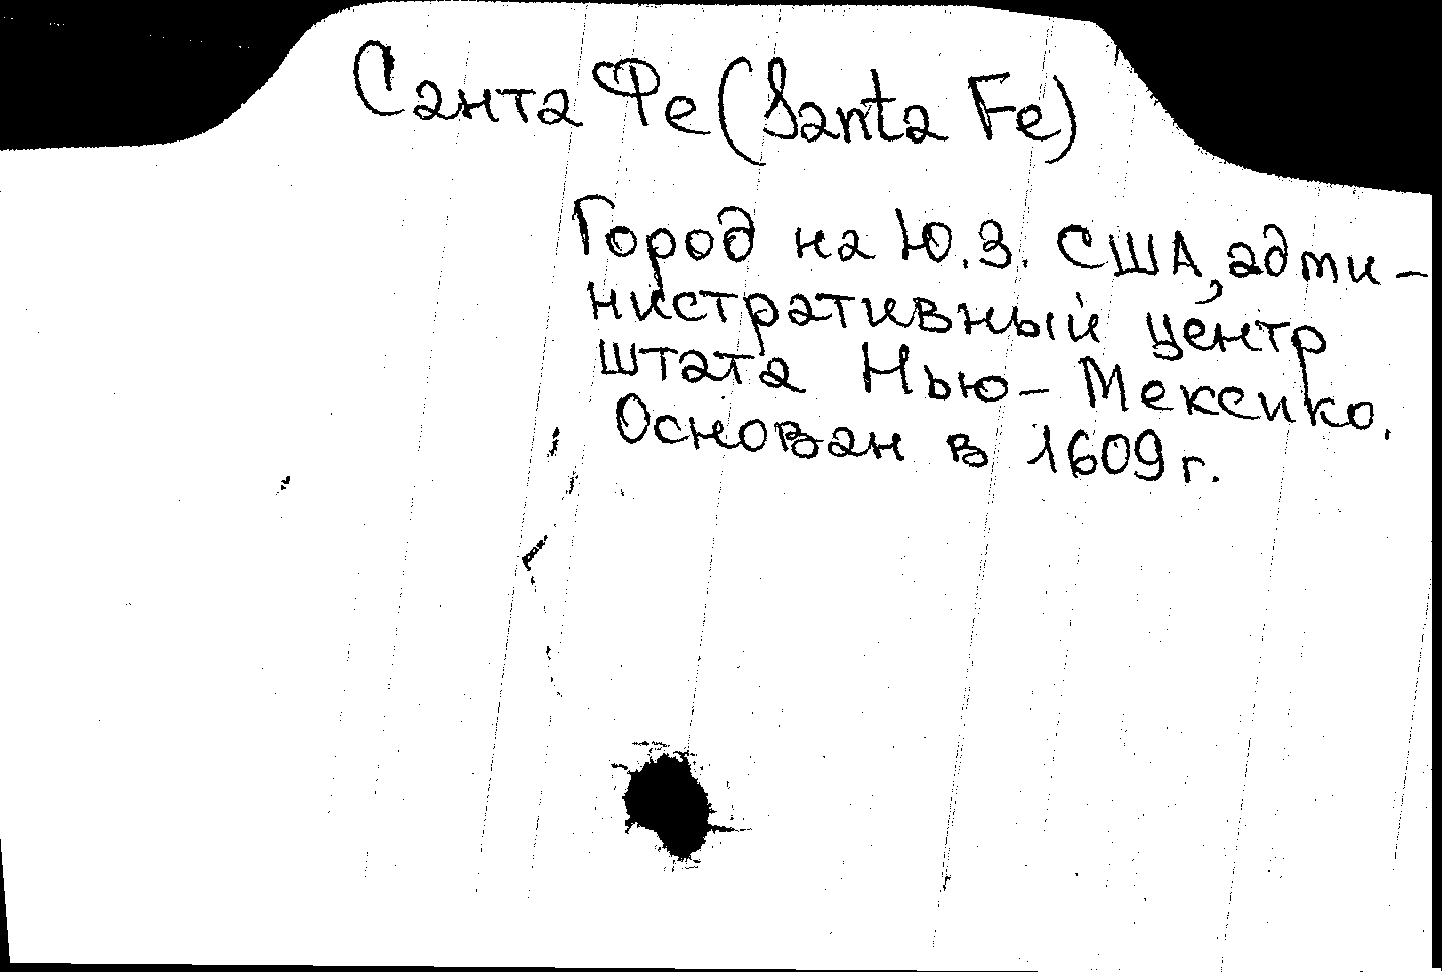 Санта Фе (Santa Fe)
Город на Ю.З. США, адми-
нистративный центр
штата Нью-Мексико.
Основан в 1609 г.